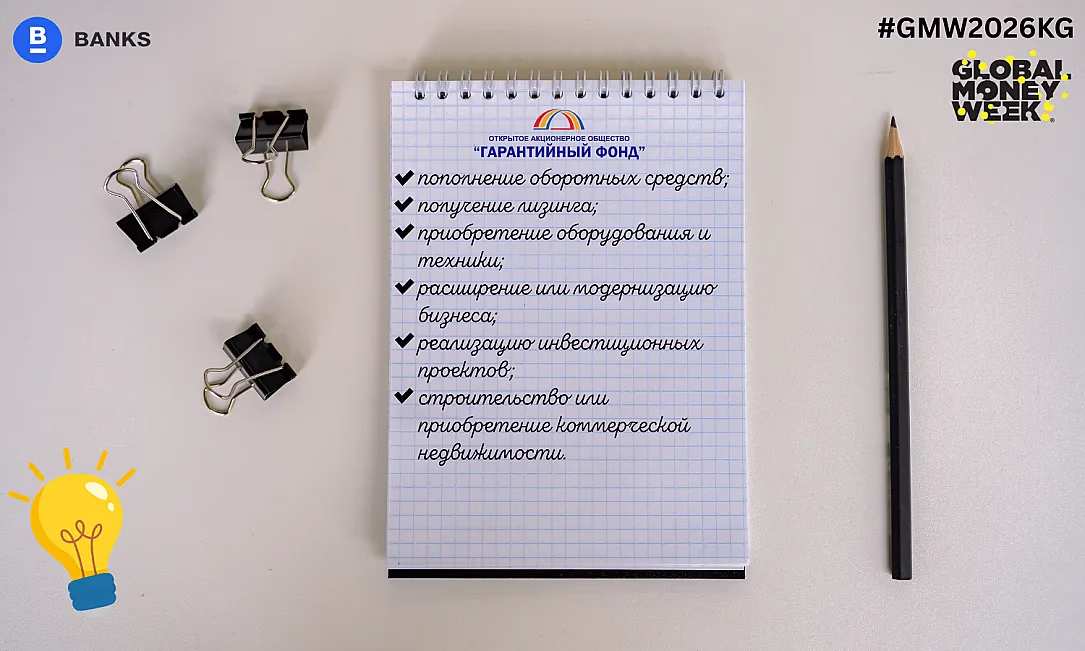 B BANKS
#GMW2026KG
GLOBAL
MONEY
WEEK®
ОТКРЫТОЕ АКЦИОНЕРНОЕ ОБЩЕСТВО
“ГАРАНТИЙНЫЙ ФОНД”
✔ пополнение оборотных средств;
✔ получение лизинга;
✔ приобретение оборудования и
техники;
✔ расширение или модернизацию
бизнеса;
✔ реализацию инвестиционных
проектов;
✔ строительство или
приобретение коммерческой
недвижимости.